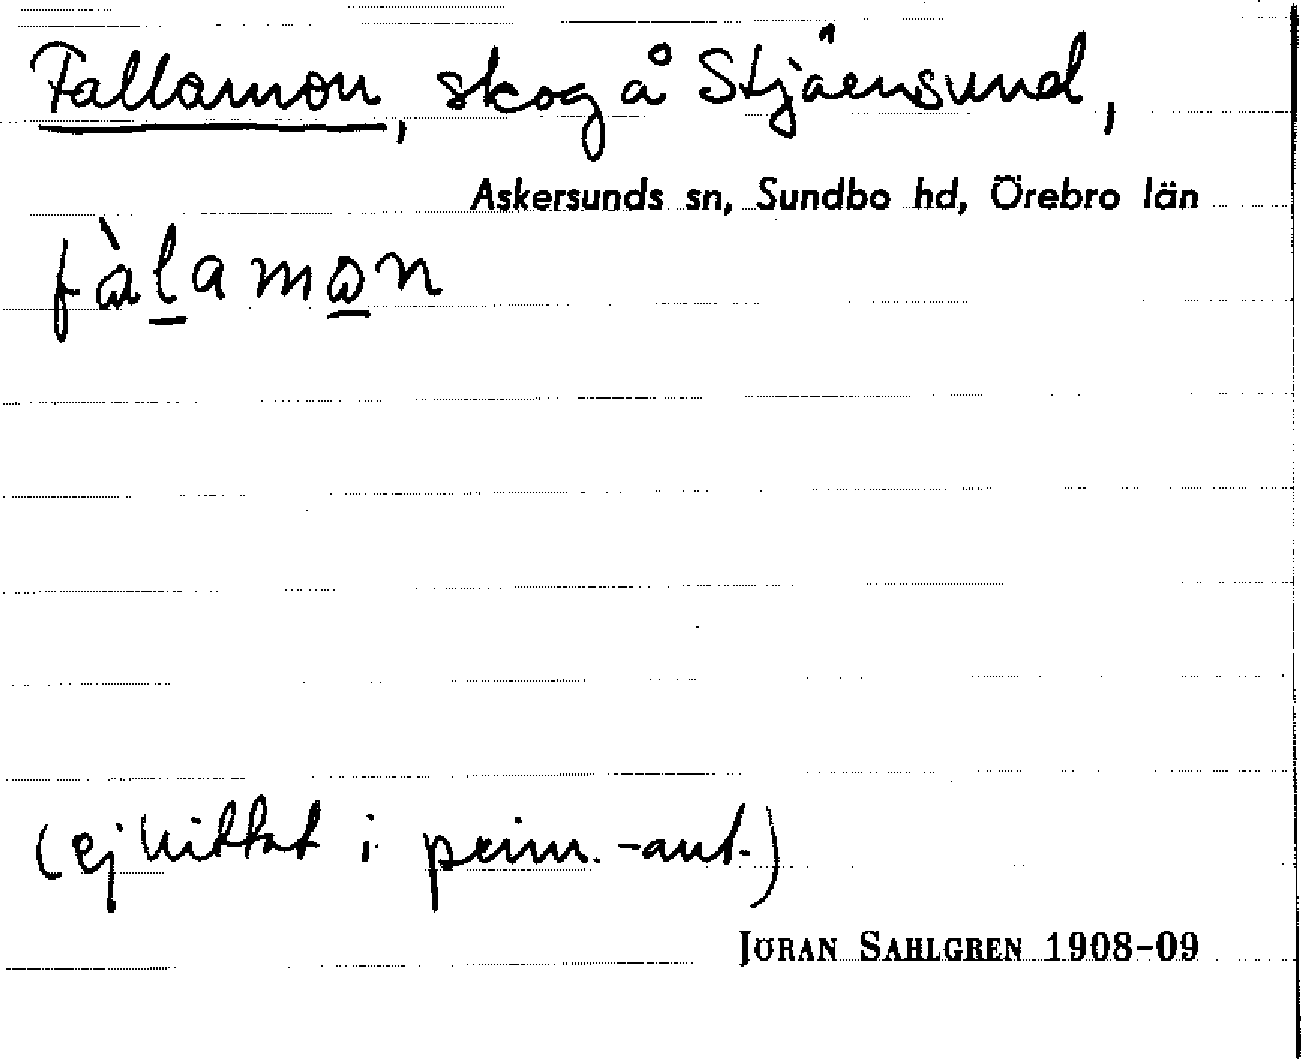 Fallamon, skog å Stjärnsund,
Askersunds sn, Sundbo hd, Örebro län
fàlamon
(ej hittat i prim.-ant.)
JÖRAN SAHLGREN 1908–09